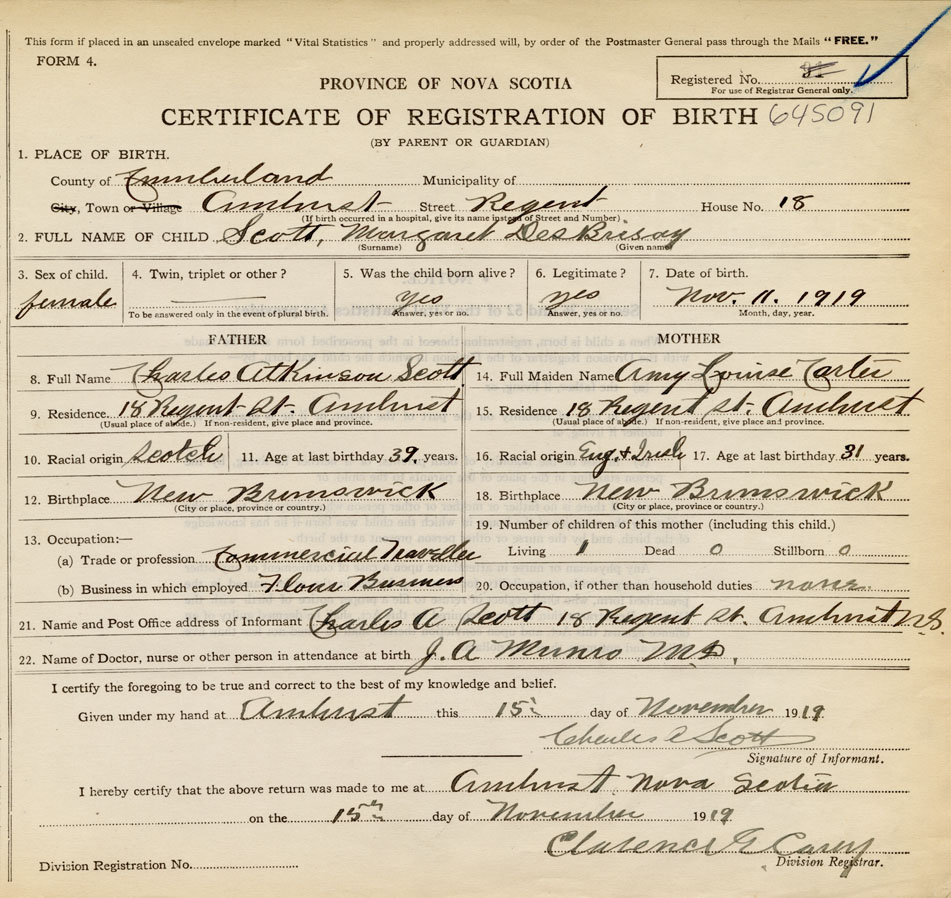 This form if placed in an unsealed envelope marked "Vital Statistics" and properly addressed will, by order of the Postmaster General pass through the Mails "FREE."
FORM 4.
Registered No.
For use of Registrar General only.
PROVINCE OF NOVA SCOTIA
CERTIFICATE OF REGISTRATION OF BIRTH 645091
(BY PARENT OR GUARDIAN)
1. PLACE OF BIRTH.
County of Cumberland Municipality of
City, Town or Village Amherst Street Regent House No. 18
(If birth occurred in a hospital, give its name instead of Street and Number)
2. FULL NAME OF CHILD Scott, Margaret DesBrisay
(Surname) (Given name)
3. Sex of child. 4. Twin, triplet or other? 5. Was the child born alive? 6. Legitimate? 7. Date of birth.
female yes yes Nov. 11. 1919
To be answered only in the event of plural birth. Answer, yes or no. Answer, yes or no. Month, day, year.
FATHER MOTHER
8. Full Name Charles Atkinson Scott 14. Full Maiden Name Amy Louise Carter
9. Residence. 18 Regent St. Amherst 15. Residence 18 Regent St. Amherst
(Usual place of abode.) If non-resident, give place and province. (Usual place of abode.) If non-resident, give place and province.
10. Racial origin Scotch 11. Age at last birthday 39. years. 16. Racial origin Eng. & Irish 17. Age at last birthday 31 years.
12. Birthplace New Brunswick 18. Birthplace New Brunswick
(City or place, province or country.) (City or place, province or country.)
13. Occupation:— 19. Number of children of this mother (including this child.)
(a) Trade or profession Commercial Traveller Living 1 Dead 0 Stillborn 0
(b) Business in which employed Flour Business 20. Occupation, if other than household duties none.
21. Name and Post Office address of Informant Charles A Scott 18 Regent St. Amherst N.S.
22. Name of Doctor, nurse or other person in attendance at birth J. A Munro M.D.
I certify the foregoing to be true and correct to the best of my knowledge and belief.
Given under my hand at Amherst this 15th day of November 1919
Charles A Scott
Signature of Informant.
I hereby certify that the above return was made to me at Amherst Nova Scotia
on the 15th day of November 1919
Clarence E Casey
Division Registration No. Division Registrar.